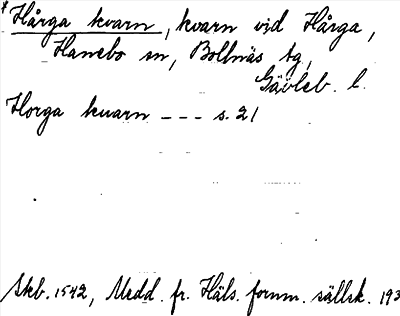 * Hårga kvarn, kvarn vid Hårga,
Hanebo sn, Bollnäs tg,
Gävleb. l.
Horga kuarn --- s. 21
Skb. 1542, Medd. fr. Häls. fornm. sällsk. 193